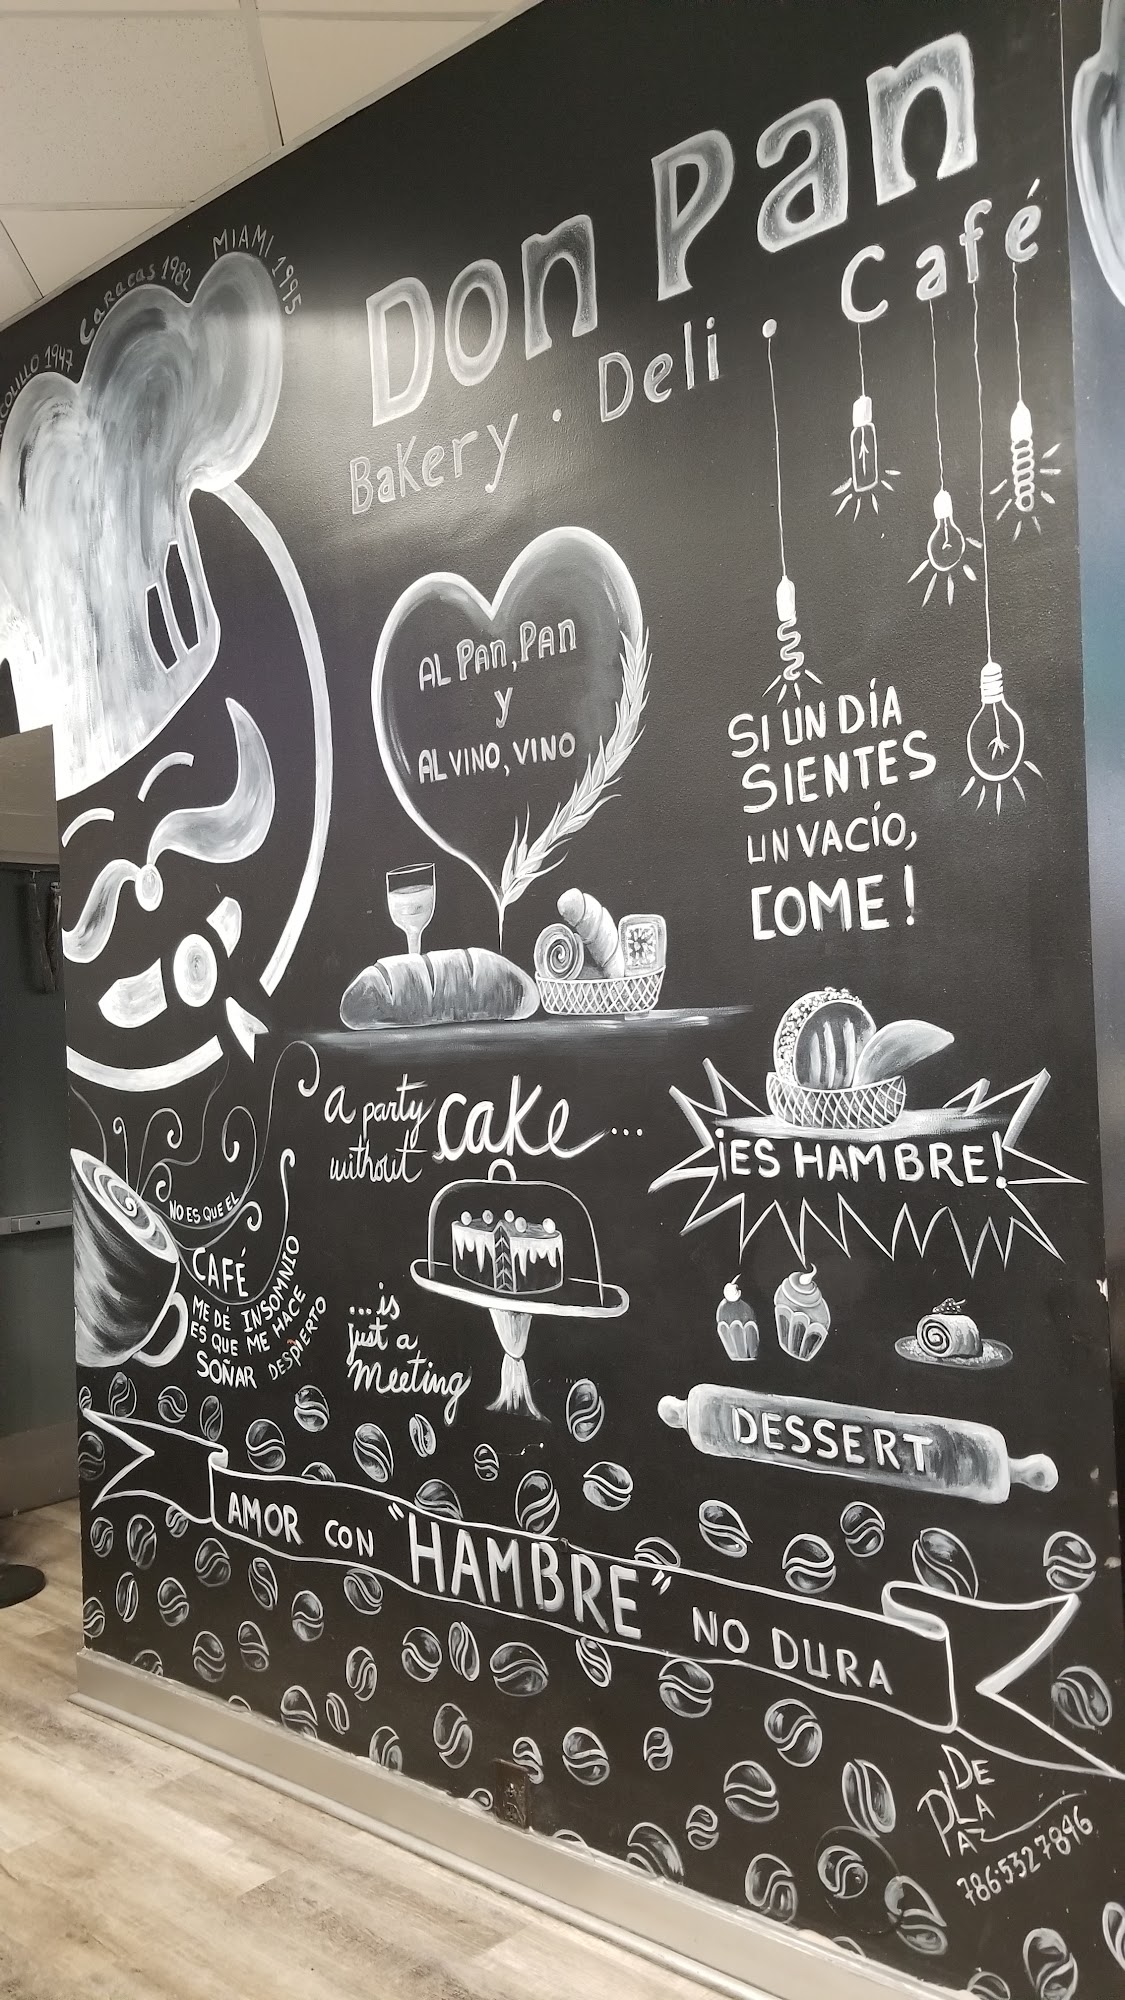 1947
Caracas 1982
MIAMI 1995
Don Pan
Bakery · Deli · Café
AL Pan, Pan
y
AL VINO, VINO
SI UN DÍA
SIENTES
UN VACÍO,
COME!
¡ES HAMBRE!
a party
without cake...
...is
just a
meeting
NO ES QUE EL
CAFÉ
ME DE INSOMNIO
ES QUE ME HACE
SOÑAR DESPIERTO
DESSERT
AMOR CON "HAMBRE" NO DURA
DE
LA
PLAZ
786·5327846